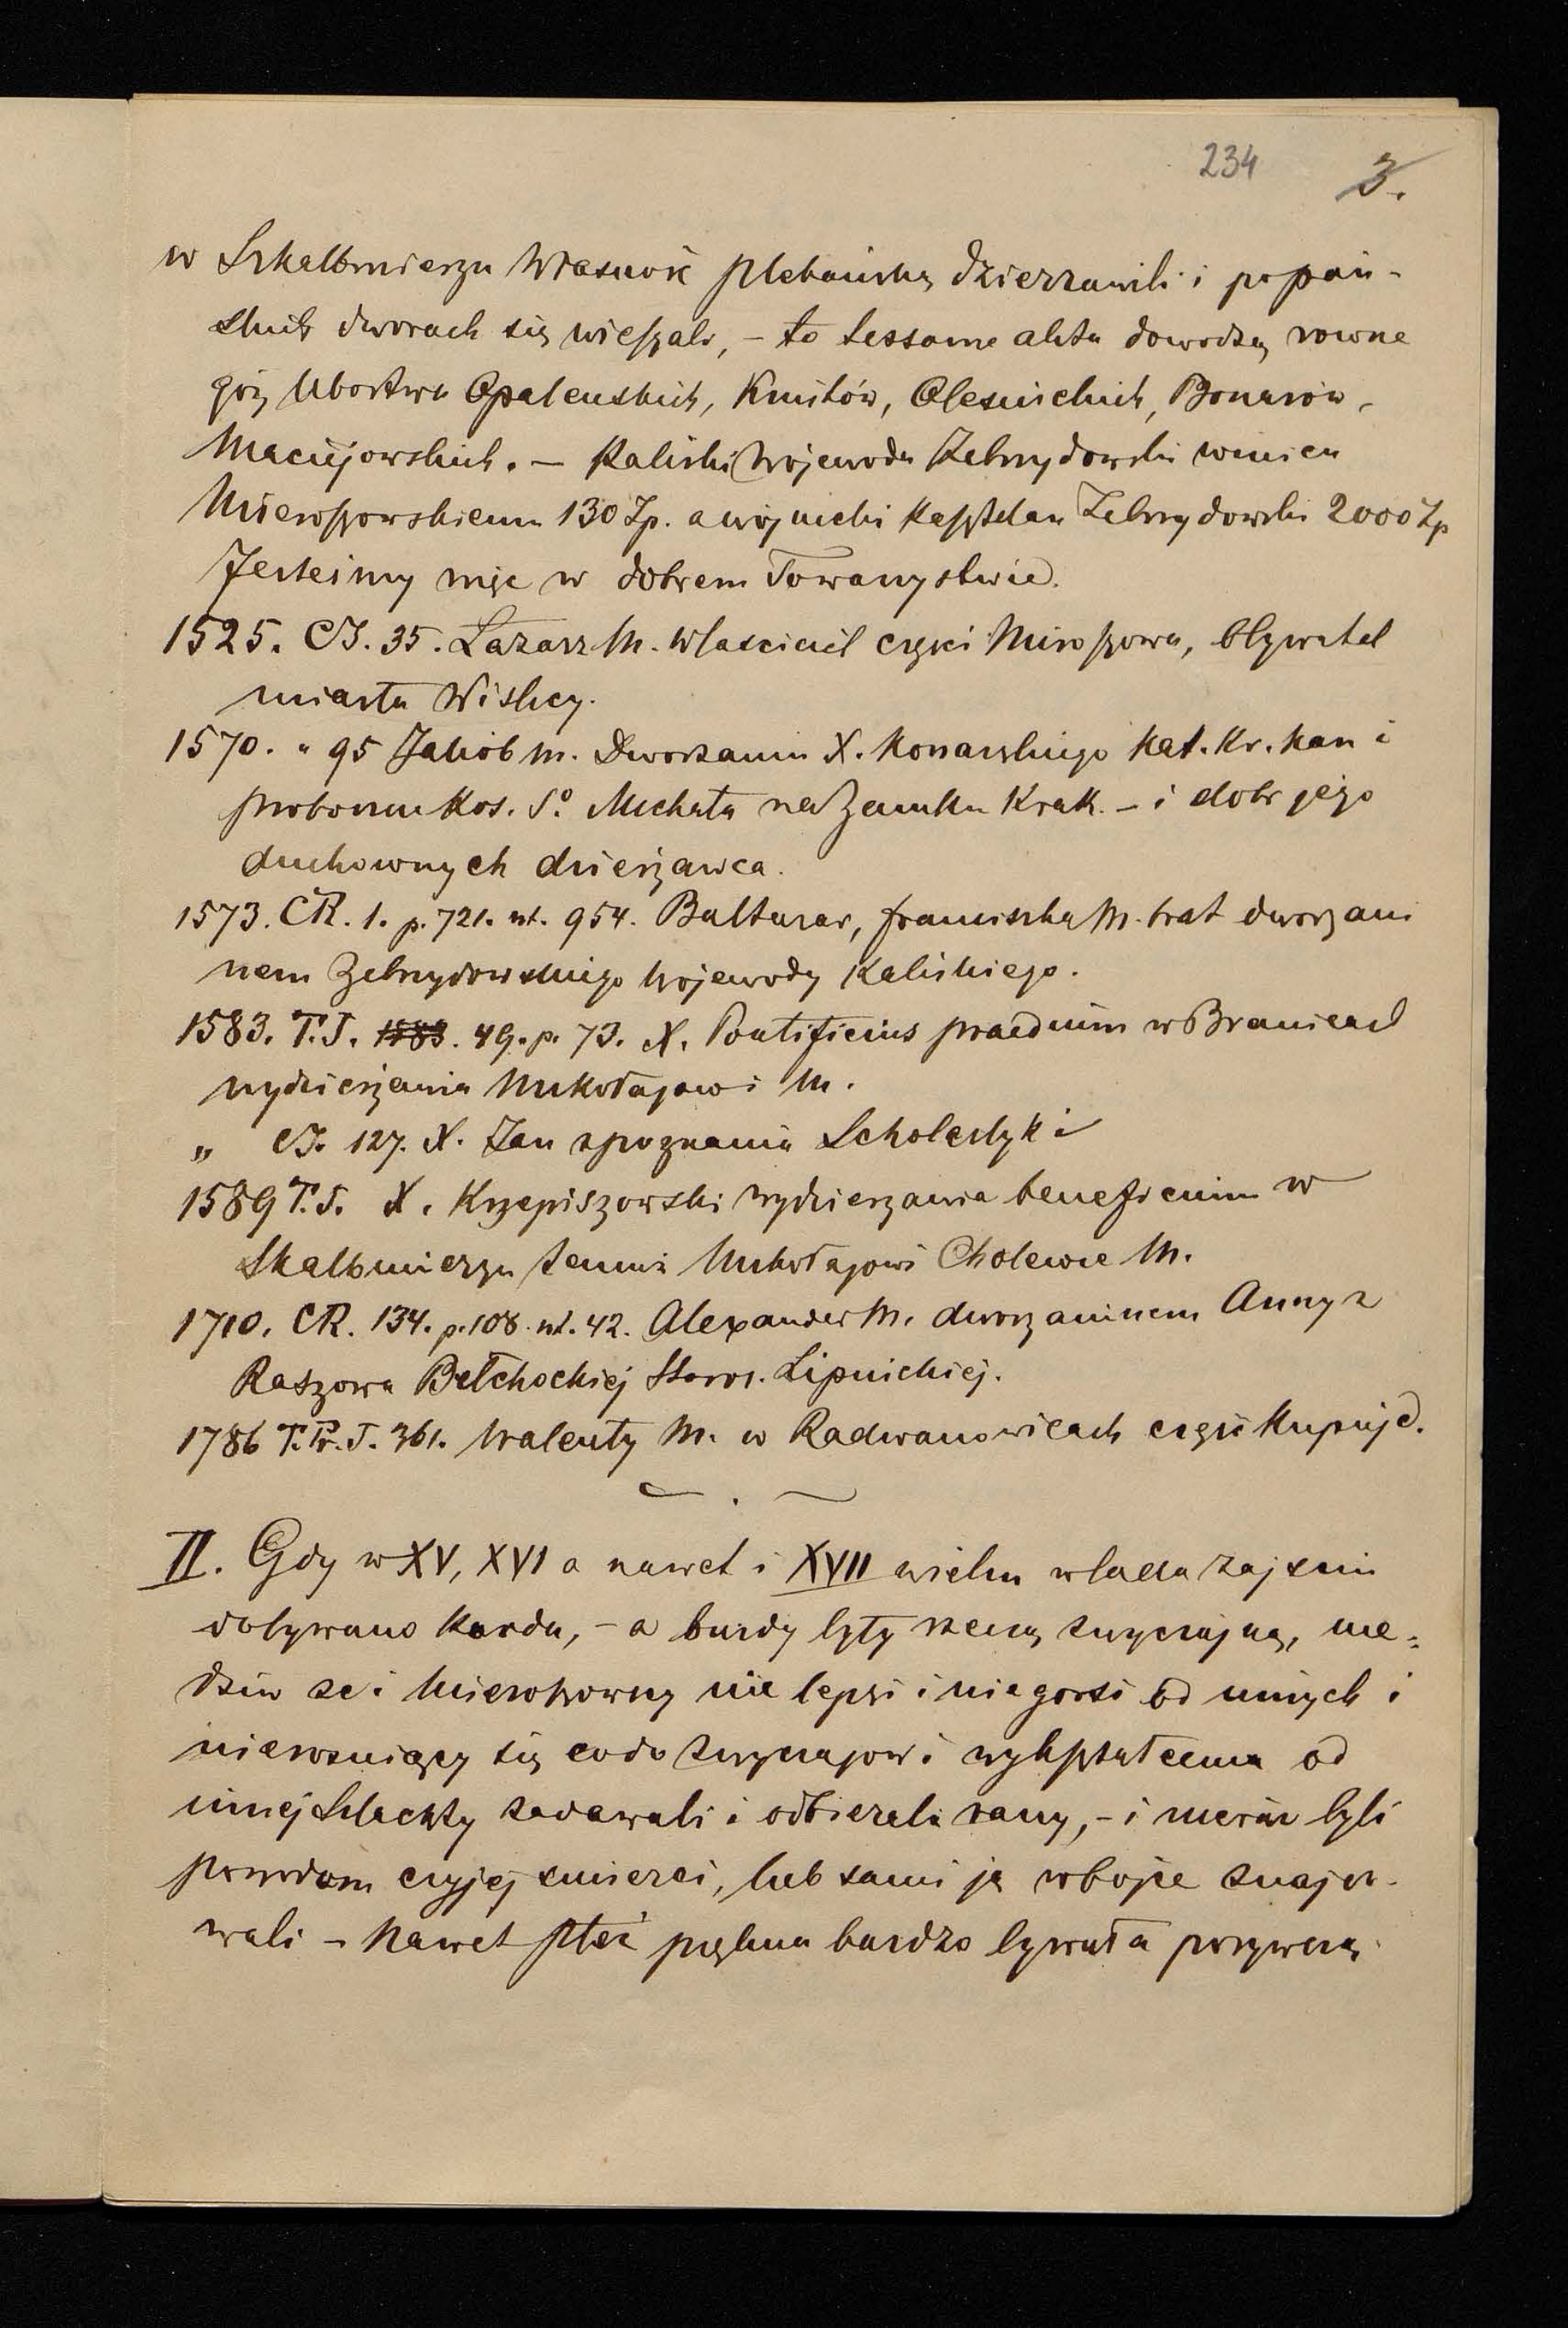 234 3.
w Skalbmierzu własność plebańską dzierzawili i po pań-
skich dworach się wieszali, - to tessame akta dowodzą rowne
goż ubostwa Opalenskich, Kmitów, Olesnickich, Bonarów,
Maciejowskich. — Kaliski Wojewoda Zebrzydowski winien
Mieroszowskiemu 130 Zp. a wojnicki Kasztelan Zebrzydowski 2000 Zp
Jestesmy więc w dobrem Towarzystwie.
1525. CJ. 35. Łazarz M. Własciciel części Miroszowa, Obywatel
miasta Wislicy.
1570. " 95 Jakób M. Dworzanin X. Konarskiego Kat. Kr. Kan i
proboszcza Kos. So Michała na Zamku Krak. - i dobr jego
duchownych dzierżawca.
1573. CR. 1. p. 721. nt. 954. Baltazar, franciszka M. brat dworzani
nem Zebrzydowskiego Wojewody Kaliskiego.
1583. T.J. 1583. 49. p. 73. X. Pontificius praedium w Branicach
wydzierżawia Mikołajowi M.
" CJ. 127. X. Jan z poznania Scholastyk i
1589 T.J. X. Krzepiszowski wydzierzawia beneficium w
Skalbmierzu temuż Mikołajowi Cholewie M.
1710. CR. 134. p. 108. nt. 42. Alexander M. dworzaninem Anny z
Raszowa Bełchackiej Staros. Lipnickiej.
1786 T.Pr.J. 361. Walenty M. w Radwanowicach część Kupuje.
II. Gdy w XV, XVI a nawet i XVII wieku w lada zajsciu
dobywano korda, - a burdy były rzeczą zwyczajną, nie=
dziw ze i Mieroszowscy nie lepsi i nie gorsi od innych i
nierozniący się co do zwyczajow i wykształcenia od
innej Szlachty zadawali i odbierali rany, - i nieraz byli
powodem czyjej smierci, lub sami ją w bojce znajdo-
wali - Nawet płeć piękna bardzo bywała porywczą